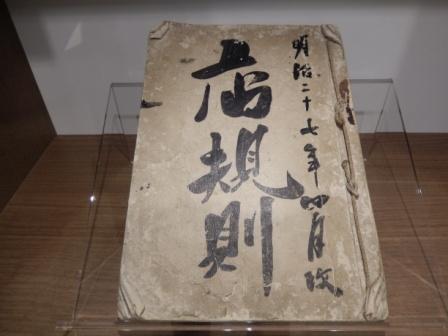 明治二十七年四月改
店規則